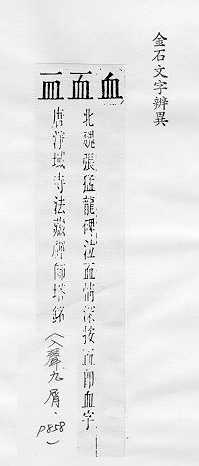 金石文字辨異
血
北魏張猛龍碑泣情深按即血字
唐淨域寺法藏禪師塔銘(入聲九屑.p858)